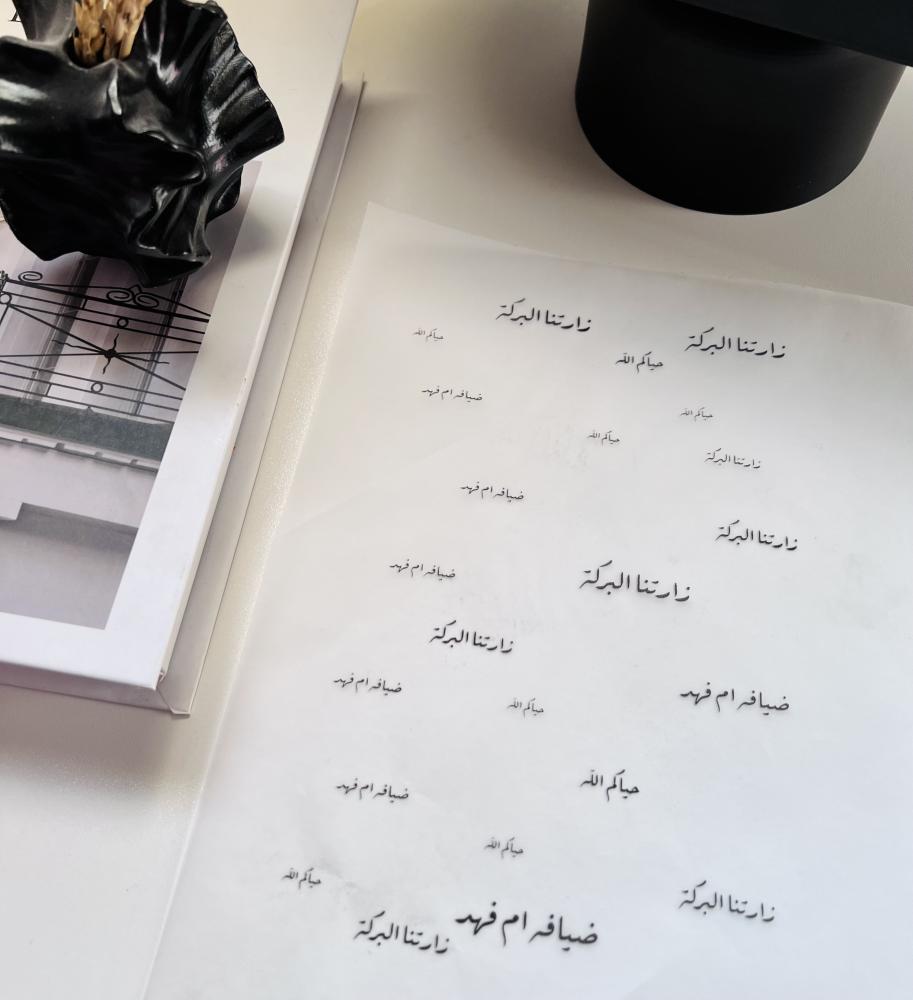 زارتنا البركة
زارتنا البركة
حياكم الله
حياكم الله
ضيافه ام فهد
حياكم الله
حياكم الله
زارتنا البركة
ضيافه ام فهد
زارتنا البركة
ضيافه ام فهد
زارتنا البركة
زارتنا البركة
ضيافه ام فهد
ضيافه ام فهد
حياكم الله
حياكم الله
ضيافه ام فهد
حياكم الله
حياكم الله
زارتنا البركة
ضيافه ام فهد
زارتنا البركة